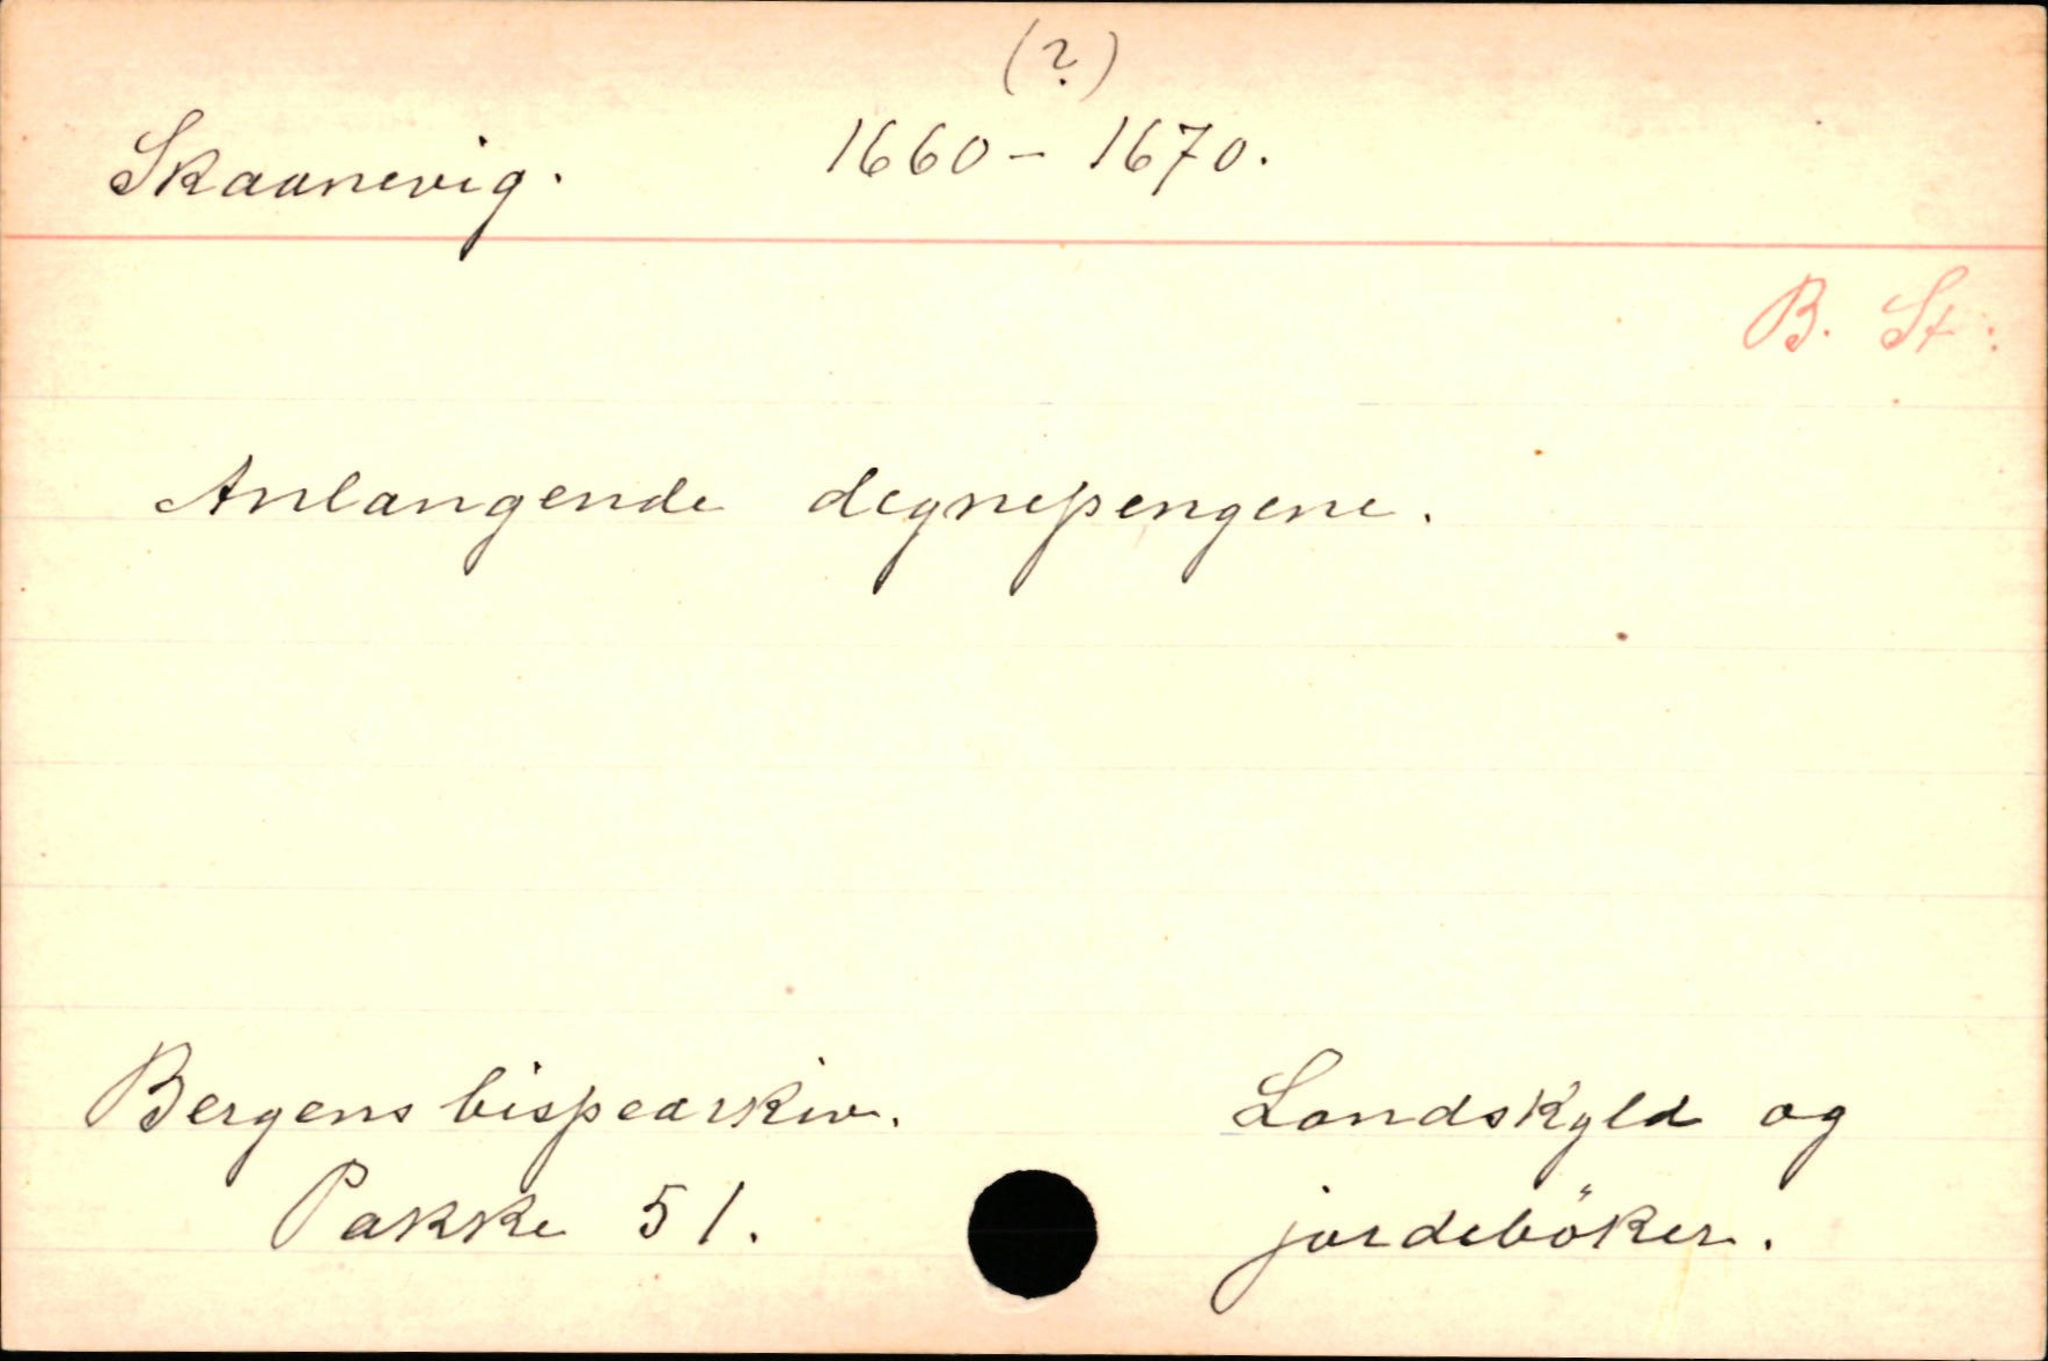 (?)
Skaanevig. 1660 - 1670.
B. St.
Anlangende degnepengene.
Bergens bispearkiv. Landskyld og
Pakke 51. jordeböker.